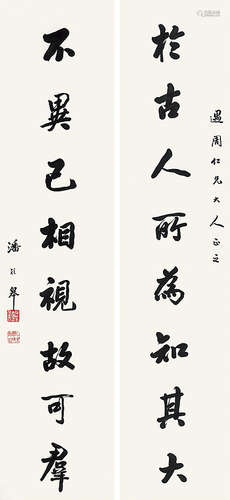 遇周仁兄大人正之
於古人所為知其大
不異己相視故可羣
潘齡皋